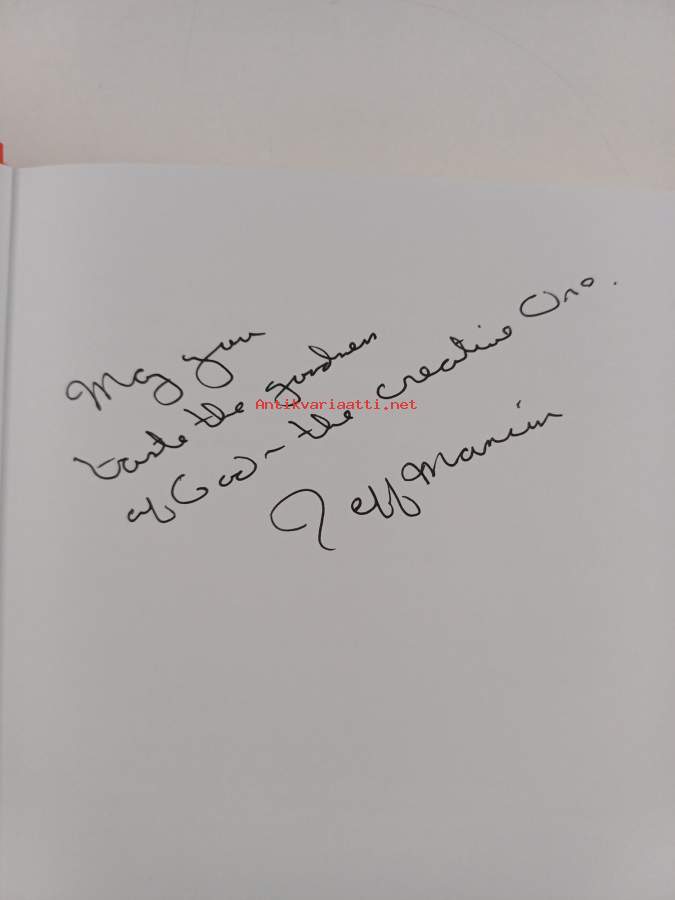 May you
taste the goodness
of God ~ the creative One.
Jeff
Antikvariaatti.net